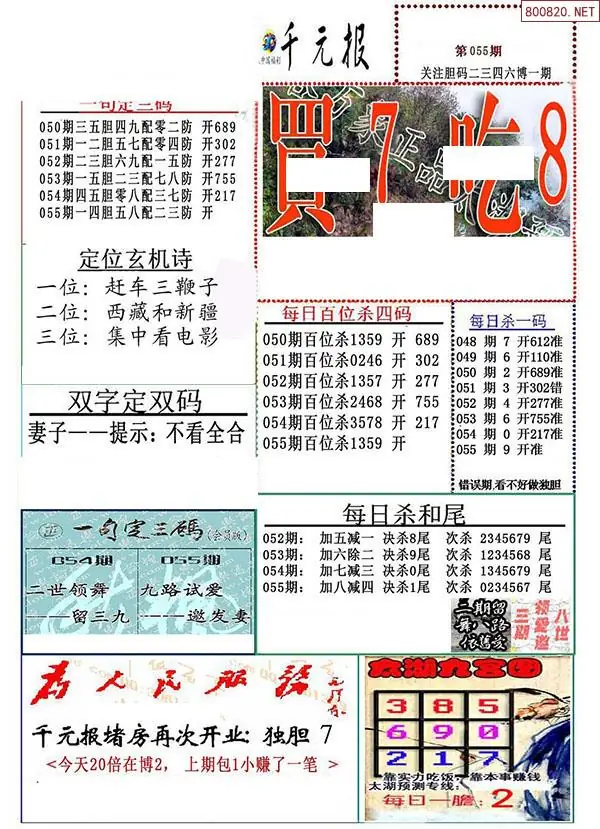 800820.NET
中国福利
千元报
第055期
关注胆码二三四六博一期
一句定三码
050期三五胆四九配零二防 开689
051期一二胆五七配零四防 开302
052期二三胆六九一五防 开277
053期一五胆二三配七八防 开755
054期四五胆零八配三七防 开217
055期一四胆五八配二三防 开
買7吃8
正品
定位玄机诗
一位:赶车三鞭子
二位:西藏和新疆
三位:集中看电影
每日百位杀四码
050期百位杀1359 开 689
051期百位杀0246 开 302
052期百位杀1357 开 277
053期百位杀2468 开 755
054期百位杀3578 开 217
055期百位杀1359 开
每日杀一码
048 期 7 开612准
049 期 6 开110准
050 期 2 开689准
051 期 3 开302错
052 期 4 开277准
053 期 6 开755准
054 期 0 开217准
055 期 9 开准
错误期,看不好做独胆
双字定双码
妻子——提示:不看全合
一句定三碼(会员版)
正
054期
055期
二世领舞
——留三九
九路试爱
——邀发妻
每日杀和尾
052期: 加五减一 决杀8尾 次杀 2345679 尾
053期: 加六除二 决杀9尾 次杀 1234568 尾
054期: 加七减三 决杀0尾 次杀 1345679 尾
055期: 加八减四 决杀1尾 次杀 0234567 尾
为人民服务
千元报堵房再次开业: 独胆 7
<今天20倍在博2, 上期包1小赚了一笔 >
太湖九宫图
3 8 5
6 9 0
2 1 7
靠实力吃饭,靠本事赚钱
太湖预测专线:
每日一胆: 2